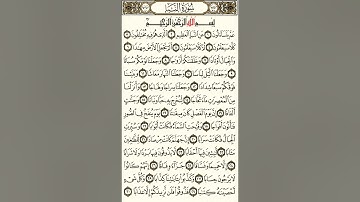 سُورَةُ النَّبَإِ
بِسْمِ اللَّهِ الرَّحْمَٰنِ الرَّحِيمِ
عَمَّ يَتَسَاءَلُونَ ١ عَنِ النَّبَإِ الْعَظِيمِ ٢ الَّذِي هُمْ فِيهِ مُخْتَلِفُونَ ٣
كَلَّا سَيَعْلَمُونَ ٤ ثُمَّ كَلَّا سَيَعْلَمُونَ ٥ أَلَمْ نَجْعَلِ الْأَرْضَ مِهَادًا ٦
وَالْجِبَالَ أَوْتَادًا ٧ وَخَلَقْنَاكُمْ أَزْوَاجًا ٨ وَجَعَلْنَا نَوْمَكُمْ سُبَاتًا ٩
وَجَعَلْنَا اللَّيْلَ لِبَاسًا ١٠ وَجَعَلْنَا النَّهَارَ مَعَاشًا ١١ وَبَنَيْنَا
فَوْقَكُمْ سَبْعًا شِدَادًا ١٢ وَجَعَلْنَا سِرَاجًا وَهَّاجًا ١٣ وَأَنزَلْنَا
مِنَ الْمُعْصِرَاتِ مَاءً ثَجَّاجًا ١٤ لِّنُخْرِجَ بِهِ حَبًّا وَنَبَاتًا ١٥ وَجَنَّاتٍ
أَلْفَافًا ١٦ إِنَّ يَوْمَ الْفَصْلِ كَانَ مِيقَاتًا ١٧ يَوْمَ يُنفَخُ فِي الصُّورِ
فَتَأْتُونَ أَفْوَاجًا ١٨ وَفُتِحَتِ السَّمَاءُ فَكَانَتْ أَبْوَابًا ١٩ وَسُيِّرَتِ
الْجِبَالُ فَكَانَتْ سَرَابًا ٢٠ إِنَّ جَهَنَّمَ كَانَتْ مِرْصَادًا ٢١ لِّلطَّاغِينَ
مَآبًا ٢٢ لَّابِثِينَ فِيهَا أَحْقَابًا ٢٣ لَّا يَذُوقُونَ فِيهَا بَرْدًا وَلَا شَرَابًا ٢٤
إِلَّا حَمِيمًا وَغَسَّاقًا ٢٥ جَزَاءً وِفَاقًا ٢٦ إِنَّهُمْ كَانُوا
لَا يَرْجُونَ حِسَابًا ٢٧ وَكَذَّبُوا بِآيَاتِنَا كِذَّابًا ٢٨ وَكُلَّ شَيْءٍ
أَحْصَيْنَاهُ كِتَابًا ٢٩ فَذُوقُوا فَلَن نَّزِيدَكُمْ إِلَّا عَذَابًا ٣٠